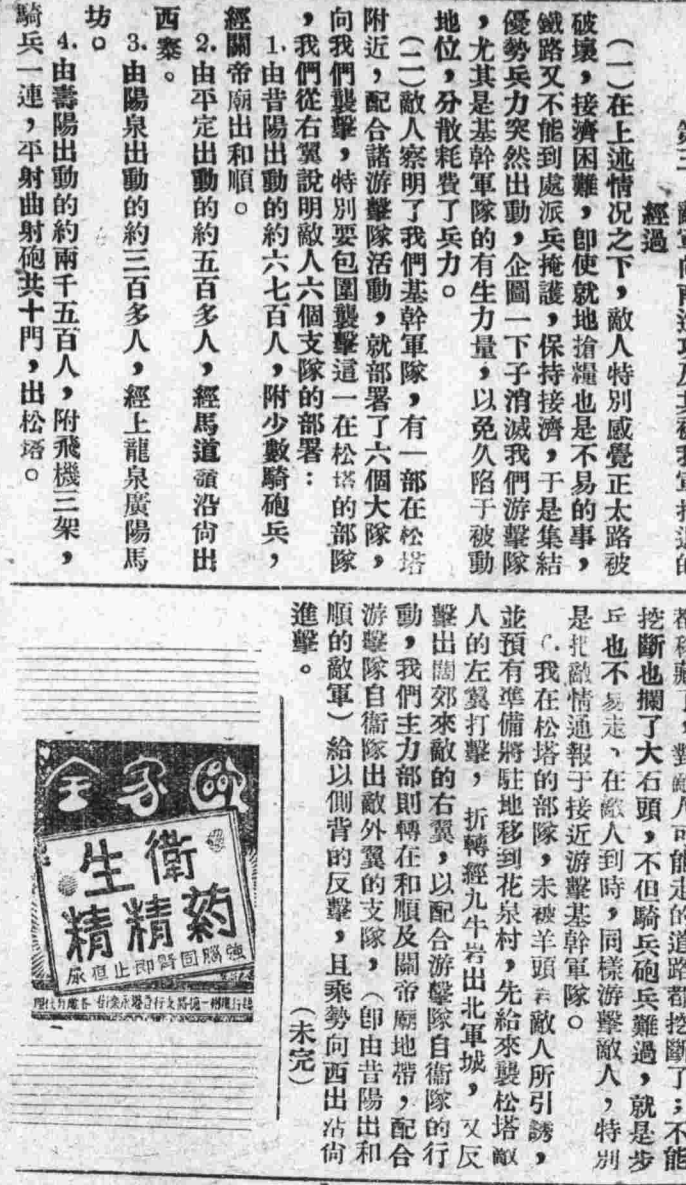 經過
（一）在上述情况之下，敵人特別感覺正太路被
破壞，接濟困難，卽使就地搶糧也是不易的事，
鐵路又不能到處派兵掩護，保持接濟，于是集結
優勢兵力突然出動，企圖一下子消滅我們游擊隊
，尤其是基幹軍隊的有生力量，以免久陷于被動
地位，分散耗費了兵力。
（二）敵人察明了我們基幹軍隊，有一部在松塔
附近，配合諸游擊隊活動，就部署了六個大隊，
向我們襲擊，特別要包圍襲擊這一在松塔的部隊
，我們從右翼說明敵人六個支隊的部署：
1.由昔陽出動的約六七百人，附少數騎砲兵，
經關帝廟出和順。
2.由平定出動的約五百多人，經馬道嶺沿尙出
西寨。
3.由陽泉出動的約三百多人，經上龍泉廣陽馬
坊。
4.由壽陽出動的約兩千五百人，附飛機三架，
騎兵一連，平射曲射砲共十門，出松塔。
對敵人可能走的道路都挖斷了；不能
挖斷也攔了大石頭，不但騎兵砲兵難過，就是步
兵也不易走、在敵人到時，同樣游擊敵人，特別
是把敵情通報于接近游擊基幹軍隊。
我在松塔的部隊，未被羊頭岩敵人所引誘，
並預有準備將駐地移到花泉村，先給來襲松塔敵
人的左翼打擊，折轉經九牛岩出北軍城，又反
擊出闊郊來敵的右翼，以配合游擊隊自衞隊的行
動，我們主力部則轉在和順及關帝廟地帶，配合
游擊隊自衞隊出敵外翼的支隊，（卽由昔陽出和
順的敵軍）給以側背的反擊，且乘勢向西出沾尙
進擊。
（未完）
衛生
藥精精
強腦固腎卽止遺尿